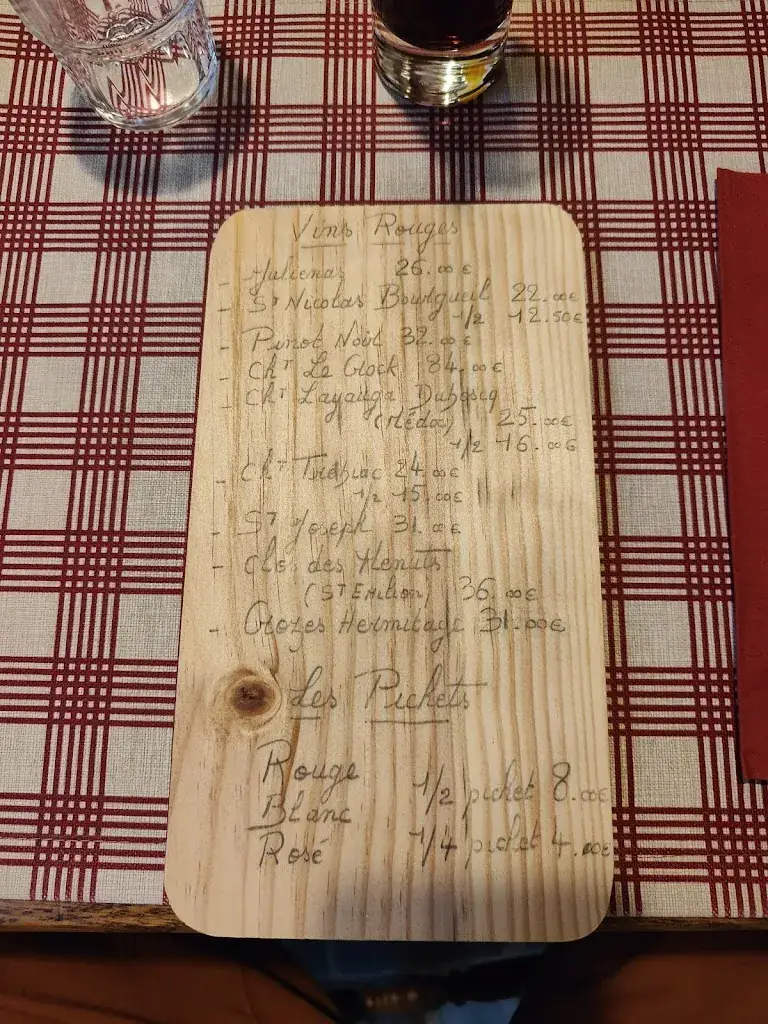 Vins Rouges
- Julienas 26.00€
- St Nicolas Bourgueil 22.00€
1/2 12.50€
- Pinot Noir 32.00€
- Cht Le Crock 84.00€
- Cht Layauga Duboscq
(Médoc) 25.00€
1/2 16.00€
- Cht 24.00€
1/2 15.00€
- St Joseph 31.00€
- Clos des Menuts
(St Emilion) 36.00€
- Crozes Hermitage 31.00€
Les Pichets
Rouge
1/2 pichet 8.00€
Blanc
Rosé 1/4 pichet 4.00€